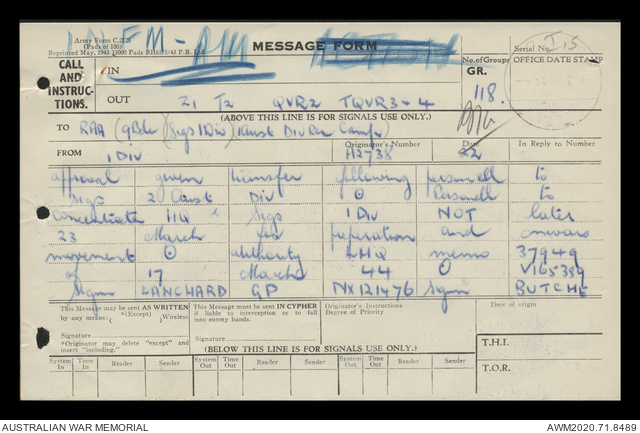 INFM-AM
Army Form C.2128
(Pads of 100)
MESSAGE FORM
Serial No. T 15
Reprinted May, 1943
CALL AND INSTRUCTIONS.
IN
No. of Groups
GR. 118
OFFICE DATE STAMP
OUT Z1 T2 QVR2 TQVR3-4
(ABOVE THIS LINE IS FOR SIGNALS USE ONLY.)
TO RAA (Sigs 1 Div)
FROM 1 DIV
Originator's Number A2738
Date 22
In Reply to Number
approval given transfer following personell to
sigs 2 Aust DIV Personell to
concentrate HQ Sigs 1 DIV NOT later
23 March for preparation and onwars
movement authority LHQ memo 37949
of 17 March 44 V165389
Sigmn LANCHARD GP NX121476 Sigmn BUTCHE
This Message may be sent AS WRITTEN
by any means; *(Except) Wireless
Signature
*Originator may delete "except" and
insert "including."
This Message must be sent IN CYPHER
if liable to interception or to fall
into enemy hands.
Signature
Originator's Instructions
Degree of Priority
Time of origin
T.H.I.
T.O.R.
(BELOW THIS LINE IS FOR SIGNALS USE ONLY.)
System In Time In Reader Sender System Out Time Out Reader Sender System Out Time Out Reader Sender
AUSTRALIAN WAR MEMORIAL AWM2020.71.8489